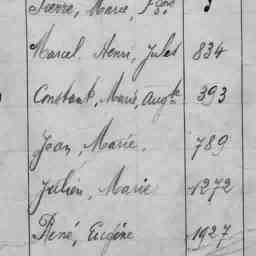 Pierre, Marie, Fçois 5
Marcel, Henri, Jules 834
Constant, Marie, Augte 393
Jean, Marie. 789
Julien, Marie 1272
René, Eugène 1927